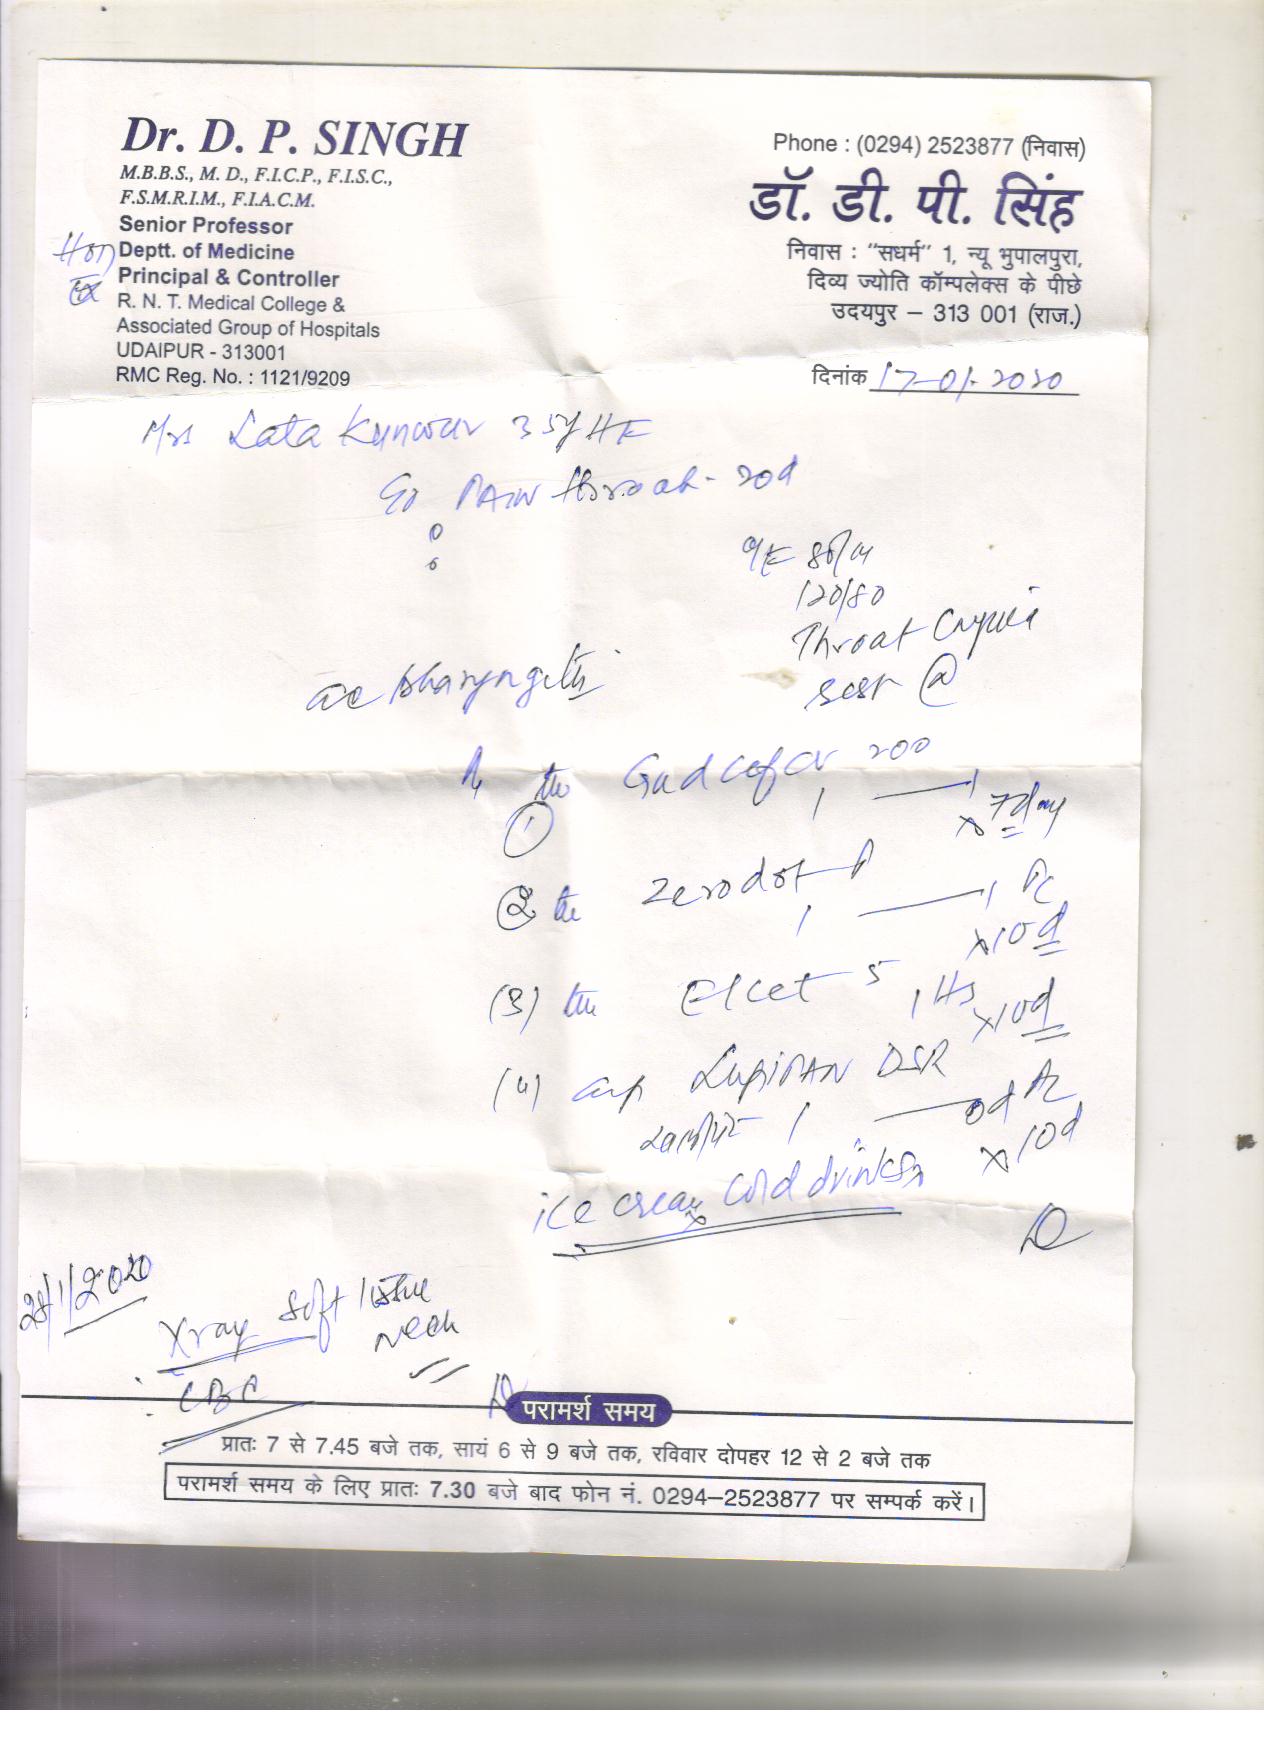 Dr. D. P. SINGH
M.B.B.S., M. D., F.I.C.P., F.I.S.C.,
F.S.M.R.I.M., F.I.A.C.M.
Senior Professor
Hon Deptt. of Medicine
Ex Principal & Controller
R. N. T. Medical College &
Associated Group of Hospitals
UDAIPUR - 313001
RMC Reg. No. : 1121/9209
Phone : (0294) 2523877 (निवास)
डॉ. डी. पी. सिंह
निवास : "सधर्म" 1, न्यू भुपालपुरा,
दिव्य ज्योति कॉम्पलेक्स के पीछे
उदयपुर – 313 001 (राज.)
दिनांक 17-01-2020
Mrs Lata Kunwar 35y
PAIN throat - 20d
O/E 80/m
120/80
Throat
ac pharyngitis
200
1 — 1 x 7 day
(2) Zerodol P
1 — 1 PC
x 10d
(3) 5
1 HS x 10d
(4) cap LupiPAN DSR
1 — od AC
x 10d
ice cream x cold drinks x
28/1/2020
Xray Soft Tissue
Neck
CBC
परामर्श समय
प्रातः 7 से 7.45 बजे तक, सायं 6 से 9 बजे तक, रविवार दोपहर 12 से 2 बजे तक
परामर्श समय के लिए प्रातः 7.30 बजे बाद फोन नं. 0294–2523877 पर सम्पर्क करें।